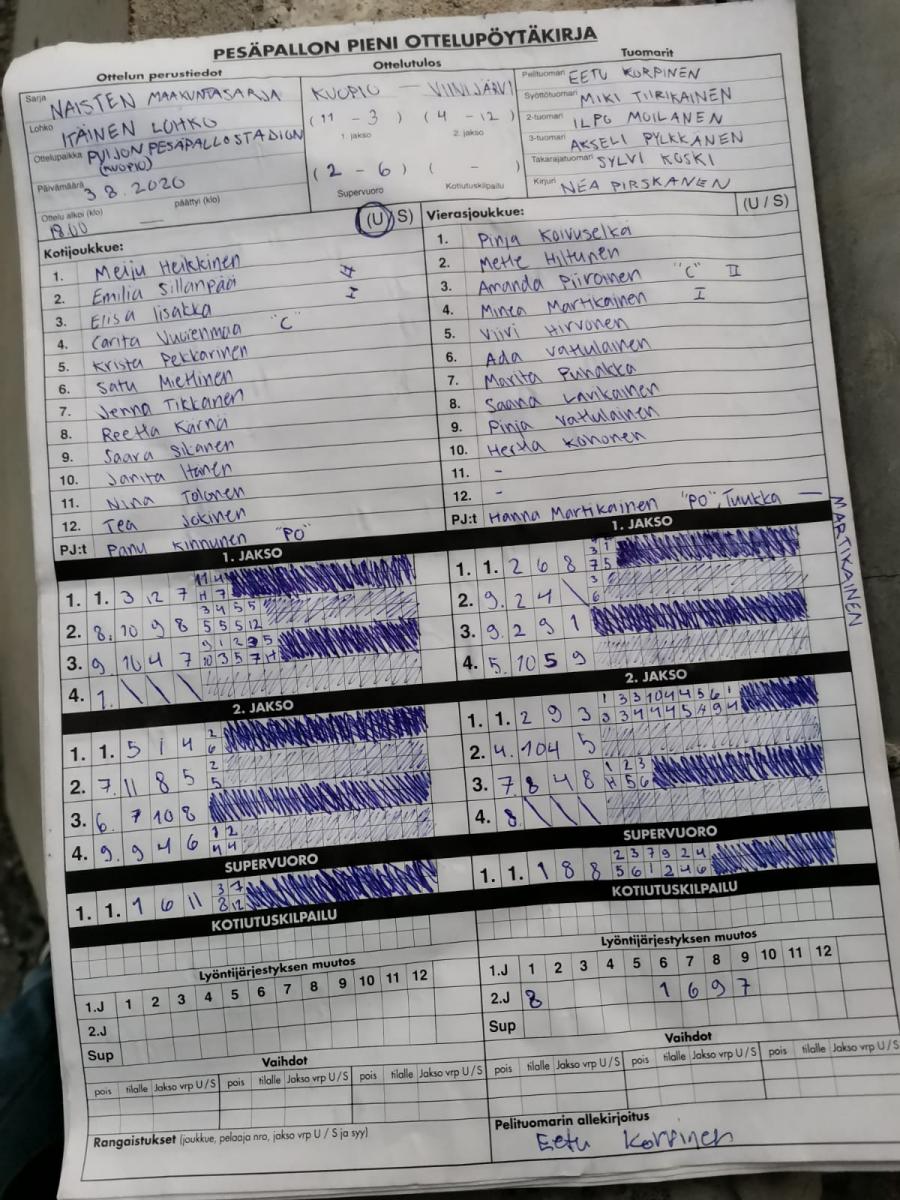 PESÄPALLON PIENI OTTELUPÖYTÄKIRJA
Ottelun perustiedot
Sarja NAISTEN MAAKUNTASARJA
Lohko ITÄINEN LOHKO
Ottelupaikka PUIJON PESÄPALLOSTADION
(KUOPIO)
Päivämäärä 3.8.2020
Ottelu alkoi (klo) päättyi (klo)
18.00 —
Ottelutulos
KUOPIO — VIINIJÄRVI
(11 - 3) (4 - 12)
1. jakso 2. jakso
(2 - 6) ( - )
Supervuoro Kotiutuskilpailu
Tuomarit
Pelituomari EETU KORPINEN
Syöttötuomari MIKI TIIRIKAINEN
2-tuomari ILPO MOILANEN
3-tuomari AKSELI PYLKKÄNEN
Takarajatuomari SYLVI KOSKI
Kirjuri NEA PIRSKANEN
Kotijoukkue: (U / S)
1. Meiju Heikkinen
2. Emilia Sillanpää II
3. Elisa Iisakka I
4. Carita Vuorenmaa "C"
5. Krista Pekkarinen
6. Satu Miettinen
7. Jenna Tikkanen
8. Reetta Kärnä
9. Saara Sikanen
10. Janita Itänen
11. Nina Tolonen
12. Tea Jokinen
PJ:t Panu Kinnunen "PO"
Vierasjoukkue: (U / S)
1. Pinja Koivuselkä
2. Mette Hiltunen
3. Amanda Piiroinen "C" II
4. Minea Martikainen I
5. Viivi Hirvonen
6. Ada Vattulainen
7. Marita Puhakka
8. Saana Lavikainen
9. Pinja Vattulainen
10. Herta Kononen
11. -
12. -
PJ:t Hanna Martikainen "PO", Tuukka —
MARTIKAINEN
1. JAKSO
1. 1. 3 12 7
2. 8. 10 9 8
3. 9 10 4 7
4. 1.
2. JAKSO
1. 1. 5 1 4
2. 7. 11 8 5
3. 6. 7 10 8
4. 9. 9 4 6
SUPERVUORO
1. 1. 1 6 11
KOTIUTUSKILPAILU
1. JAKSO
1. 1. 2 6 8
2. 9. 2 4
3. 9. 2 9 1
4. 5. 10 5 9
2. JAKSO
1. 1. 2 9 3
2. 4. 10 4 5
3. 7. 8 4 8
4. 8.
SUPERVUORO
1. 1. 1 8 8
KOTIUTUSKILPAILU
Lyöntijärjestyksen muutos
1.J 1 2 3 4 5 6 7 8 9 10 11 12
2.J
Sup
Vaihdot
pois tilalle Jakso vrp U / S pois tilalle Jakso vrp U / S pois tilalle Jakso vrp U / S
Rangaistukset (joukkue, pelaaja nro, jakso vrp U / S ja syy)
Lyöntijärjestyksen muutos
1.J 1 2 3 4 5 6 7 8 9 10 11 12
2.J 8 1 6 9 7
Sup
Vaihdot
pois tilalle Jakso vrp U / S pois tilalle Jakso vrp U / S pois tilalle Jakso vrp U / S
Pelituomarin allekirjoitus
Eetu Korpinen